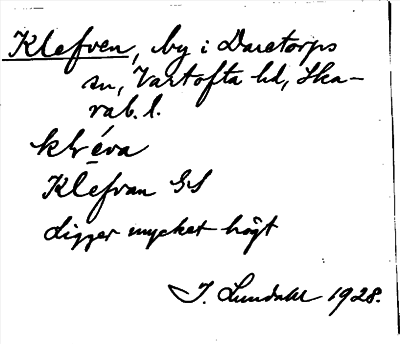 Klefven, by i Daretorps
sn, Vartofta hd, Ska-
rab. l.
klréva
Klefvan GS
Ligger mycket högt
I. Lundahl 1928.